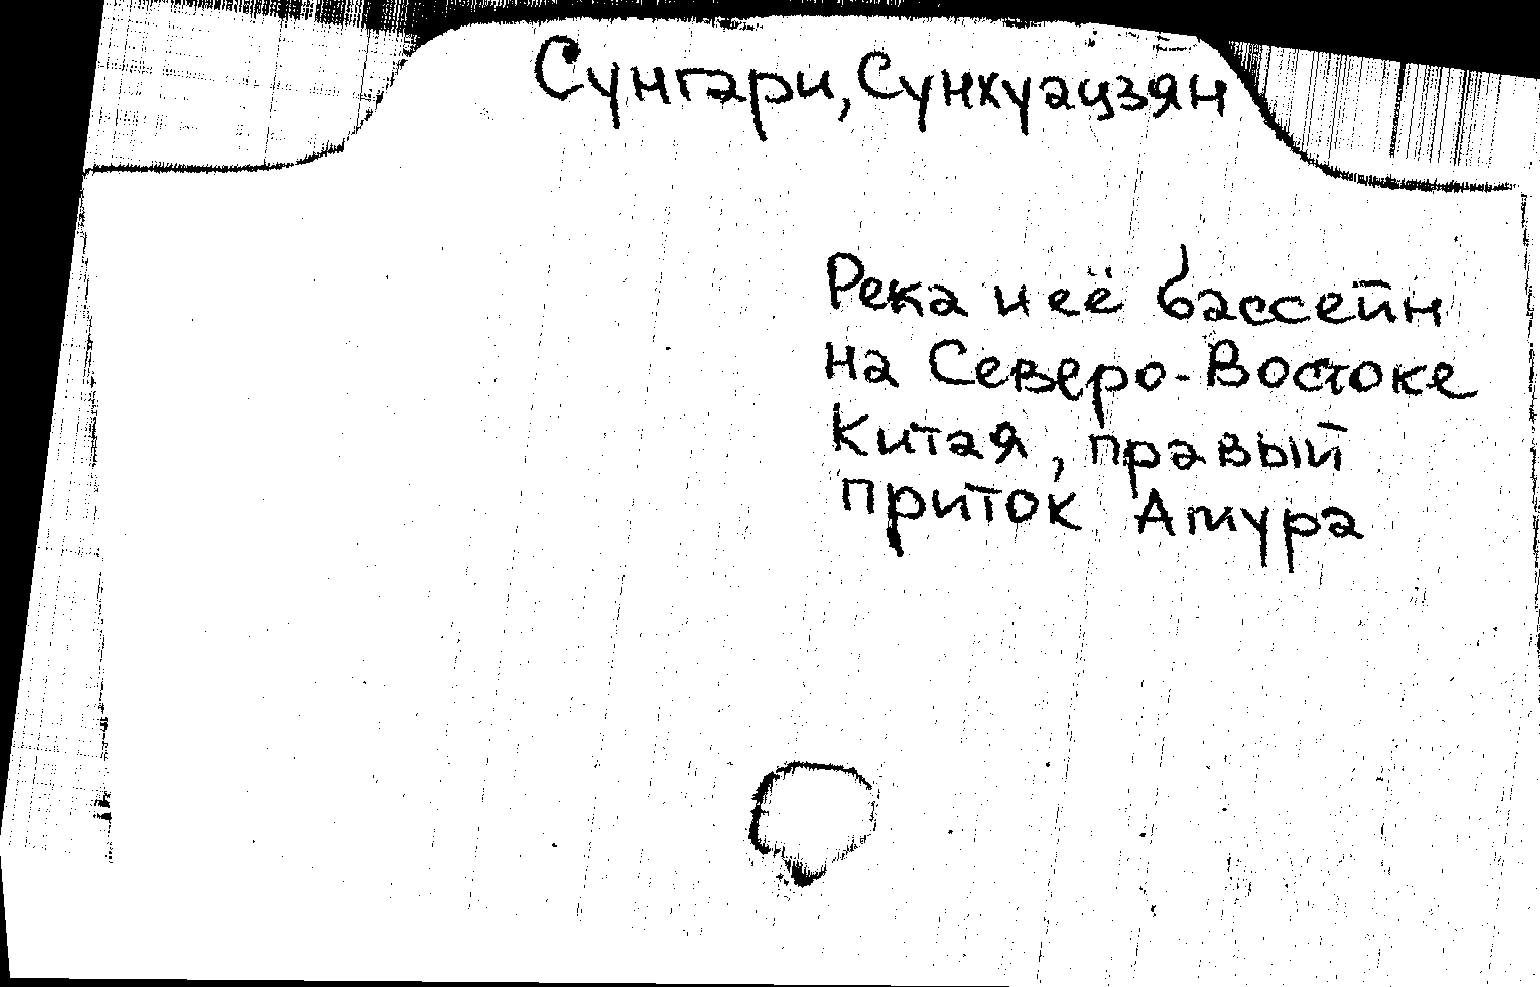 Сунгари, Сунхуацзян
Река и её бассейн
на Северо-Востоке
Китая, правый
приток Амура